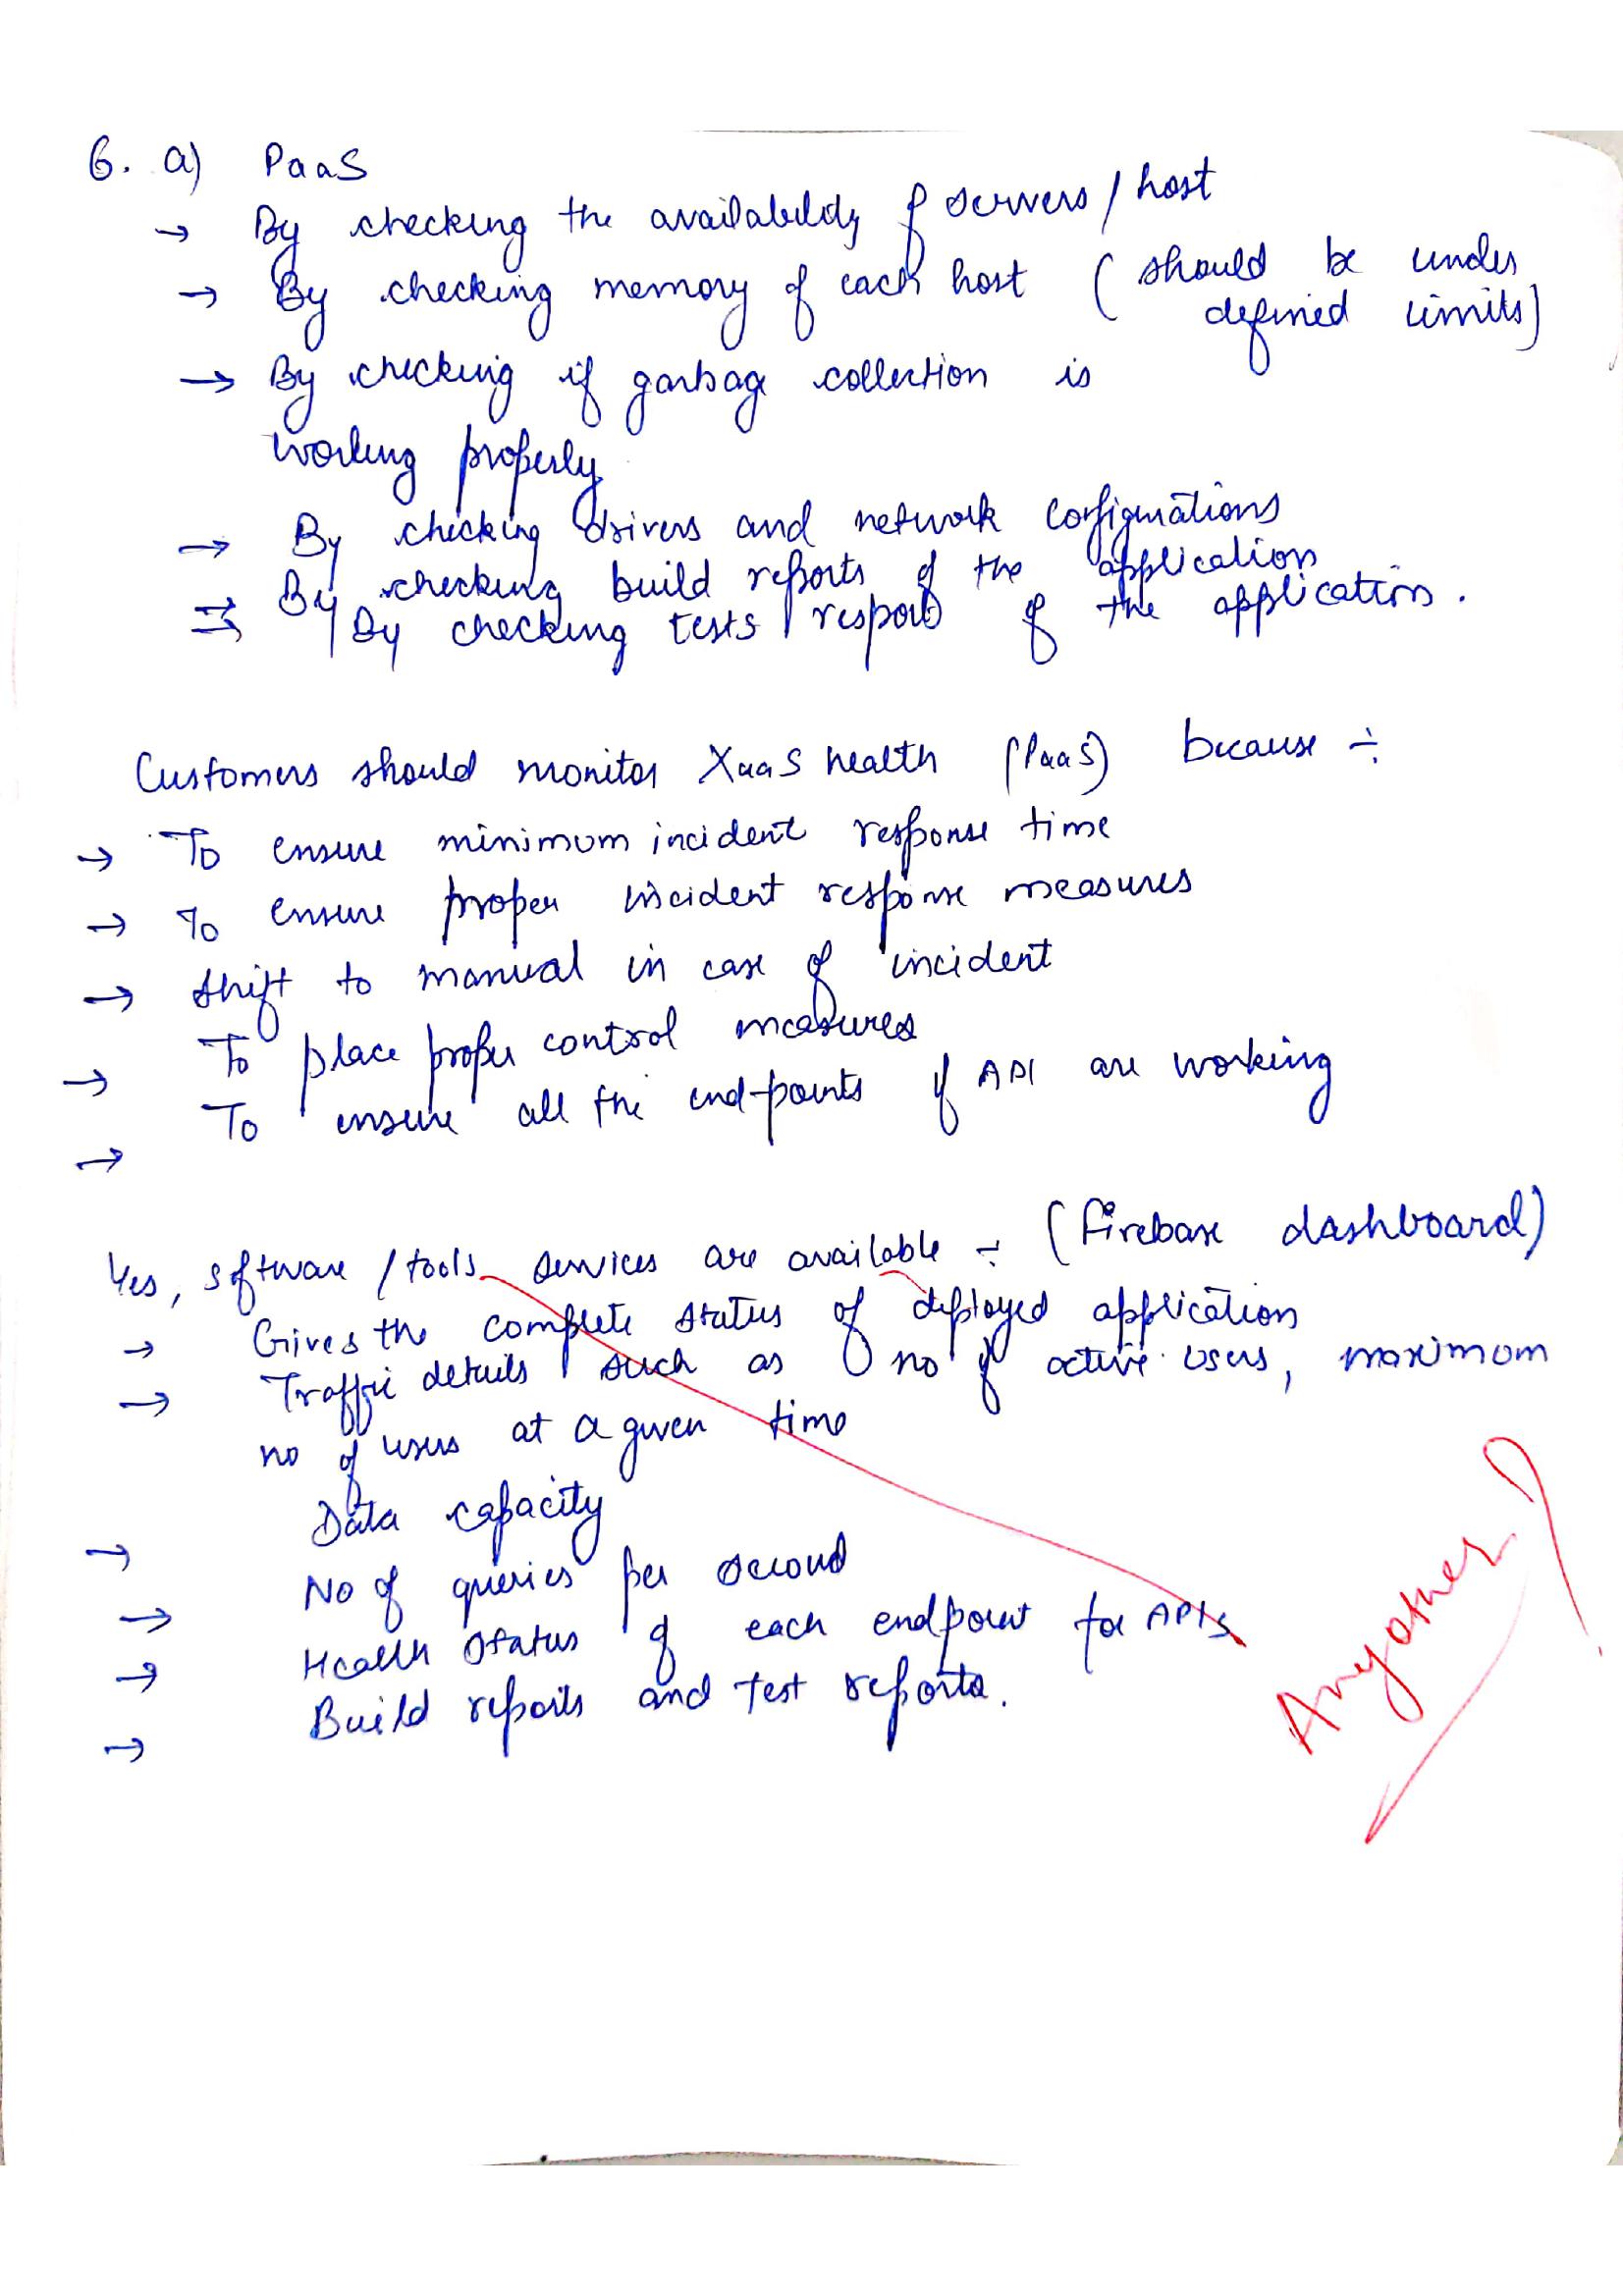 6. a) PaaS
→ By checking the availability of servers / host
→ By checking memory of each host ( should be under
defined limits)
→ By checking if garbage collection is
working properly
→ By checking drivers and network configurations
→ By checking build reports of the application
→ By checking tests respors of the application.
Customers should monitor XaaS health (PaaS) because ÷
→ To ensure minimum incident response time
→ To ensure proper incident response measures
→ Shift to manual in case of incident
→ To place proper control measures
→ To ensure all the end-points of API are working
Yes, software / tools services are available ÷ (firebase dashboard)
→ Gives the complete status of deployed application
→ Traffic details such as no of active users, maximum
no of users at a given time
→ Data capacity
→ No of queries per second
→ Health status of each endpoint for APIs
→ Build reports and test reports.
Any other ?